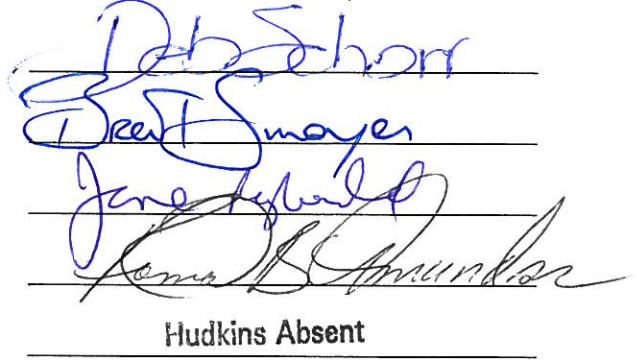 Deb Schorr
Brent Smoyer
Jane Raybould
Roma B Amundson
Hudkins Absent